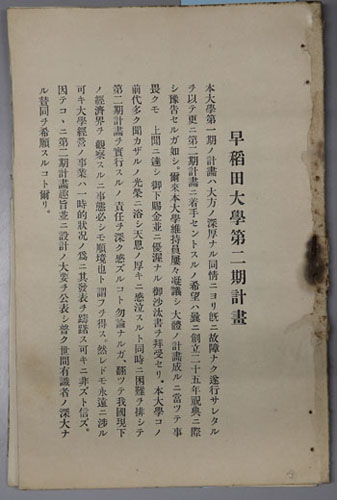 早稻田大學第二期計畫
本大學第一期ノ計畫ハ大方ノ深厚ナル同情ニヨリ旣ニ故障ナク遂行サレタル
ヲ以テ更ニ第二期計畫ニ着手セントスルノ希望ハ曩ニ創立二十五年祝典ニ際
シ豫告セルガ如シ。爾來本大學維持員屢々凝議シ大體ノ計畫成ルニ當ツテ事
畏クモ 上聞ニ達シ御下賜金並ニ優渥ナル御沙汰書ヲ拜受セリ。本大學コノ
前代多ク聞カザルノ光榮ニ浴シ天恩ノ厚キニ感泣スルト同時ニ困難ヲ排シテ
第二期計畫ヲ實行スルノ責任ヲ深ク感ズルコト勿論ナルガ、飜ツテ我國現下
ノ經濟界ヲ觀察スルニ事態必シモ順境也ト謂フヲ得ス。然レドモ永遠ニ涉ル
可キ大學經營ノ事業ハ一時的狀況ノ爲ニ其發表ヲ躊躇ス可キニ非ズト信ズ。
因テコヽニ第二期計畫趣旨並ニ設計ノ大要ヲ公表シ普ク世間有識者ノ深大ナ
ル賛同ヲ希願スルコト爾リ。